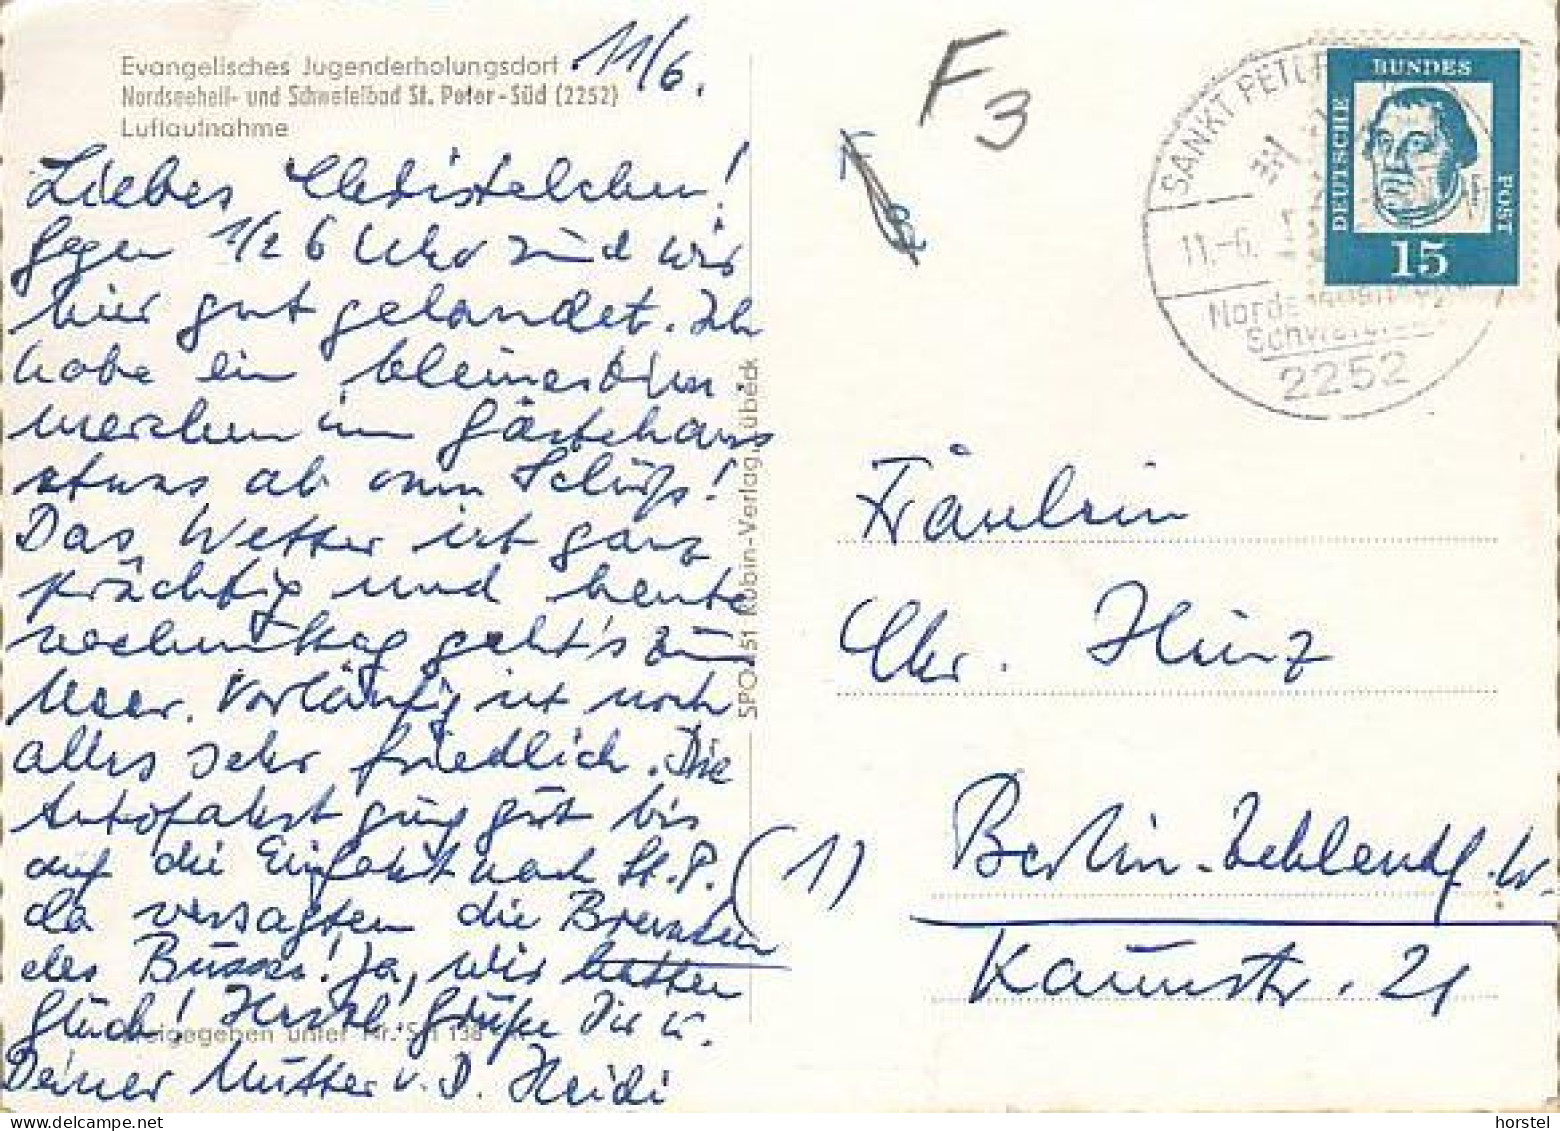 Evangelisches Jugenderholungsdorf
Nordseeheil- und Schwefelbad St. Peter-Süd (2252)
Luftaufnahme
11/6.
Liebes Christelchen!
Gegen 1/2 6 Uhr sind wir
hier gut gelandet. Ich
habe ein kleines Zim
merchen im Gästehaus
etwas ab vom Schuß!
Das Wetter ist ganz
prächtig und heute
nachmittag geht's zum
Meer. Vorläufig ist noch
alles sehr friedlich. Die
Autofahrt ging gut bis
auf die Einfahrt nach St. P.
da versagten die Bremsen
des Busses! Ja, wir hatten
Glück! Herzl. Grüße Dir u.
Deiner Mutter v. D. Heidi
Freigegeben unter Nr. SH 138
SPO 451 Rubin-Verlag, Lübeck
F3
SANKT PETER
11.-6.
Nordseeheil- u.
Schwefelbad
2252
DEUTSCHE
BUNDES
POST
15
Fräulein
Chr. Hinz
(1) Berlin-Zehlendf. W.
Kaunstr. 21
www.delcampe.net
horstel